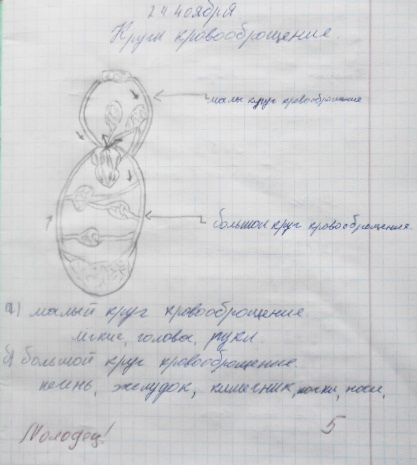 24 ноября
Круги кровооброщение.
малы круг кровооброщение
большой круг кровооброщение.
а) малый круг кровооброщение.
лёгкие, голова, руки
б) большой круг кровооброщение.
печень, желудок, кишечник, почки, ноги,
5
Молодец!